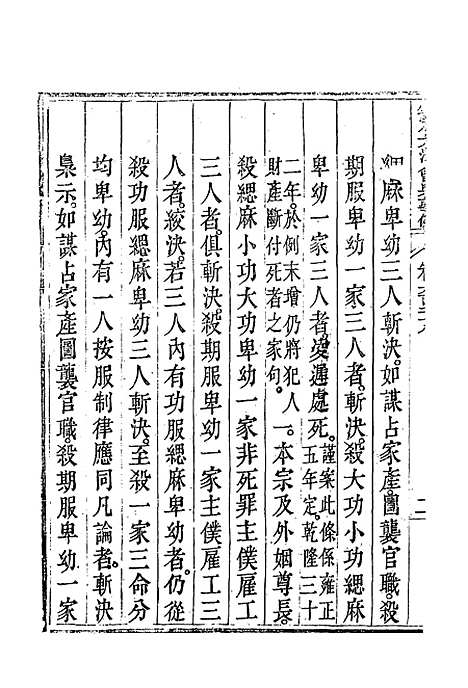 緦麻卑幼三人斬決。如謀占家產。圖襲官職。殺
期服卑幼一家三人者。斬決。殺大功小功緦麻
卑幼一家三人者。凌遲處死。謹案此條係雍正五年定。乾隆三十
二年。於例末增仍將犯人財產斷付死者之家句。一。本宗及外姻尊長。
殺緦麻小功大功卑幼一家非死罪主僕雇工
三人者。俱斬決。殺期服卑幼一家主僕雇工三
人者。絞決。若三人內有功服緦麻卑幼者。仍從
殺功服緦麻卑幼三人斬決。至殺一家三命分
均卑幼。內有一人按服制律應同凡論者。斬決
梟示。如謀占家產。圖襲官職。殺期服卑幼一家